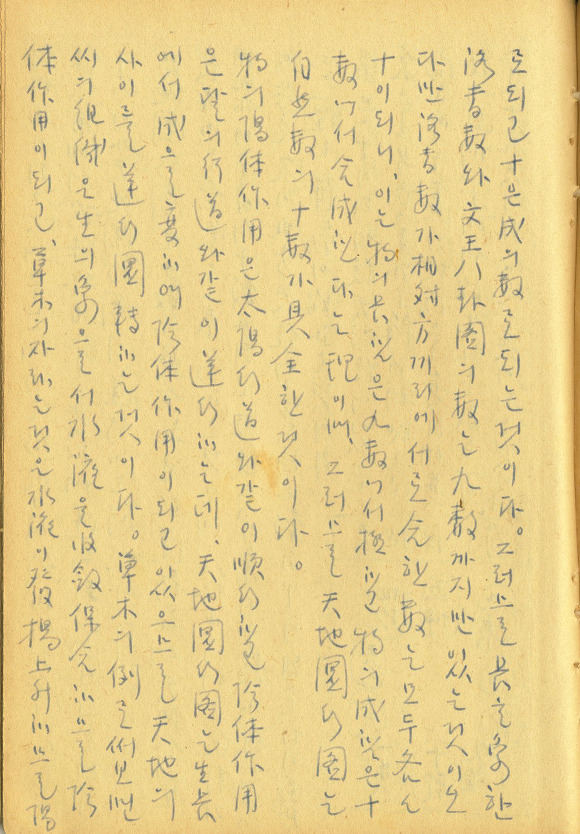 로되고 十은 成의 數로 되는 것이다。 그러므로 長을 象한
洛書數와 文王八卦圖의 數는 九數까지만 있는 것이오
다만 洛書數가 相対方끼리에 서로 合한 數는 모두 各各
十이 되니, 이는 物의 長했은 九數에서 極하고 物의 成했은 十
數에서 合成한다는 理이며, 그러므로 天地圓行圖는
自然數의 十數가 具全한 것이다。
物의 陽体作用은 太陽行道와 같이 順行하고 陰体作用
은 달의 行道와 같이 逆行하는데, 天地圓行圖는 生長
에서 成으로 変하며 陰体作用이 되고 있으므로 天地의
사이를 逆行圓轉하는 것이다。 草木의 例로써 보면
씨의 組織은 生의 象으로서 水液을 收斂保合하므로 陰
体作用이 되고, 草木의 자라는 것은 水液이 發揚上升하므로 陽